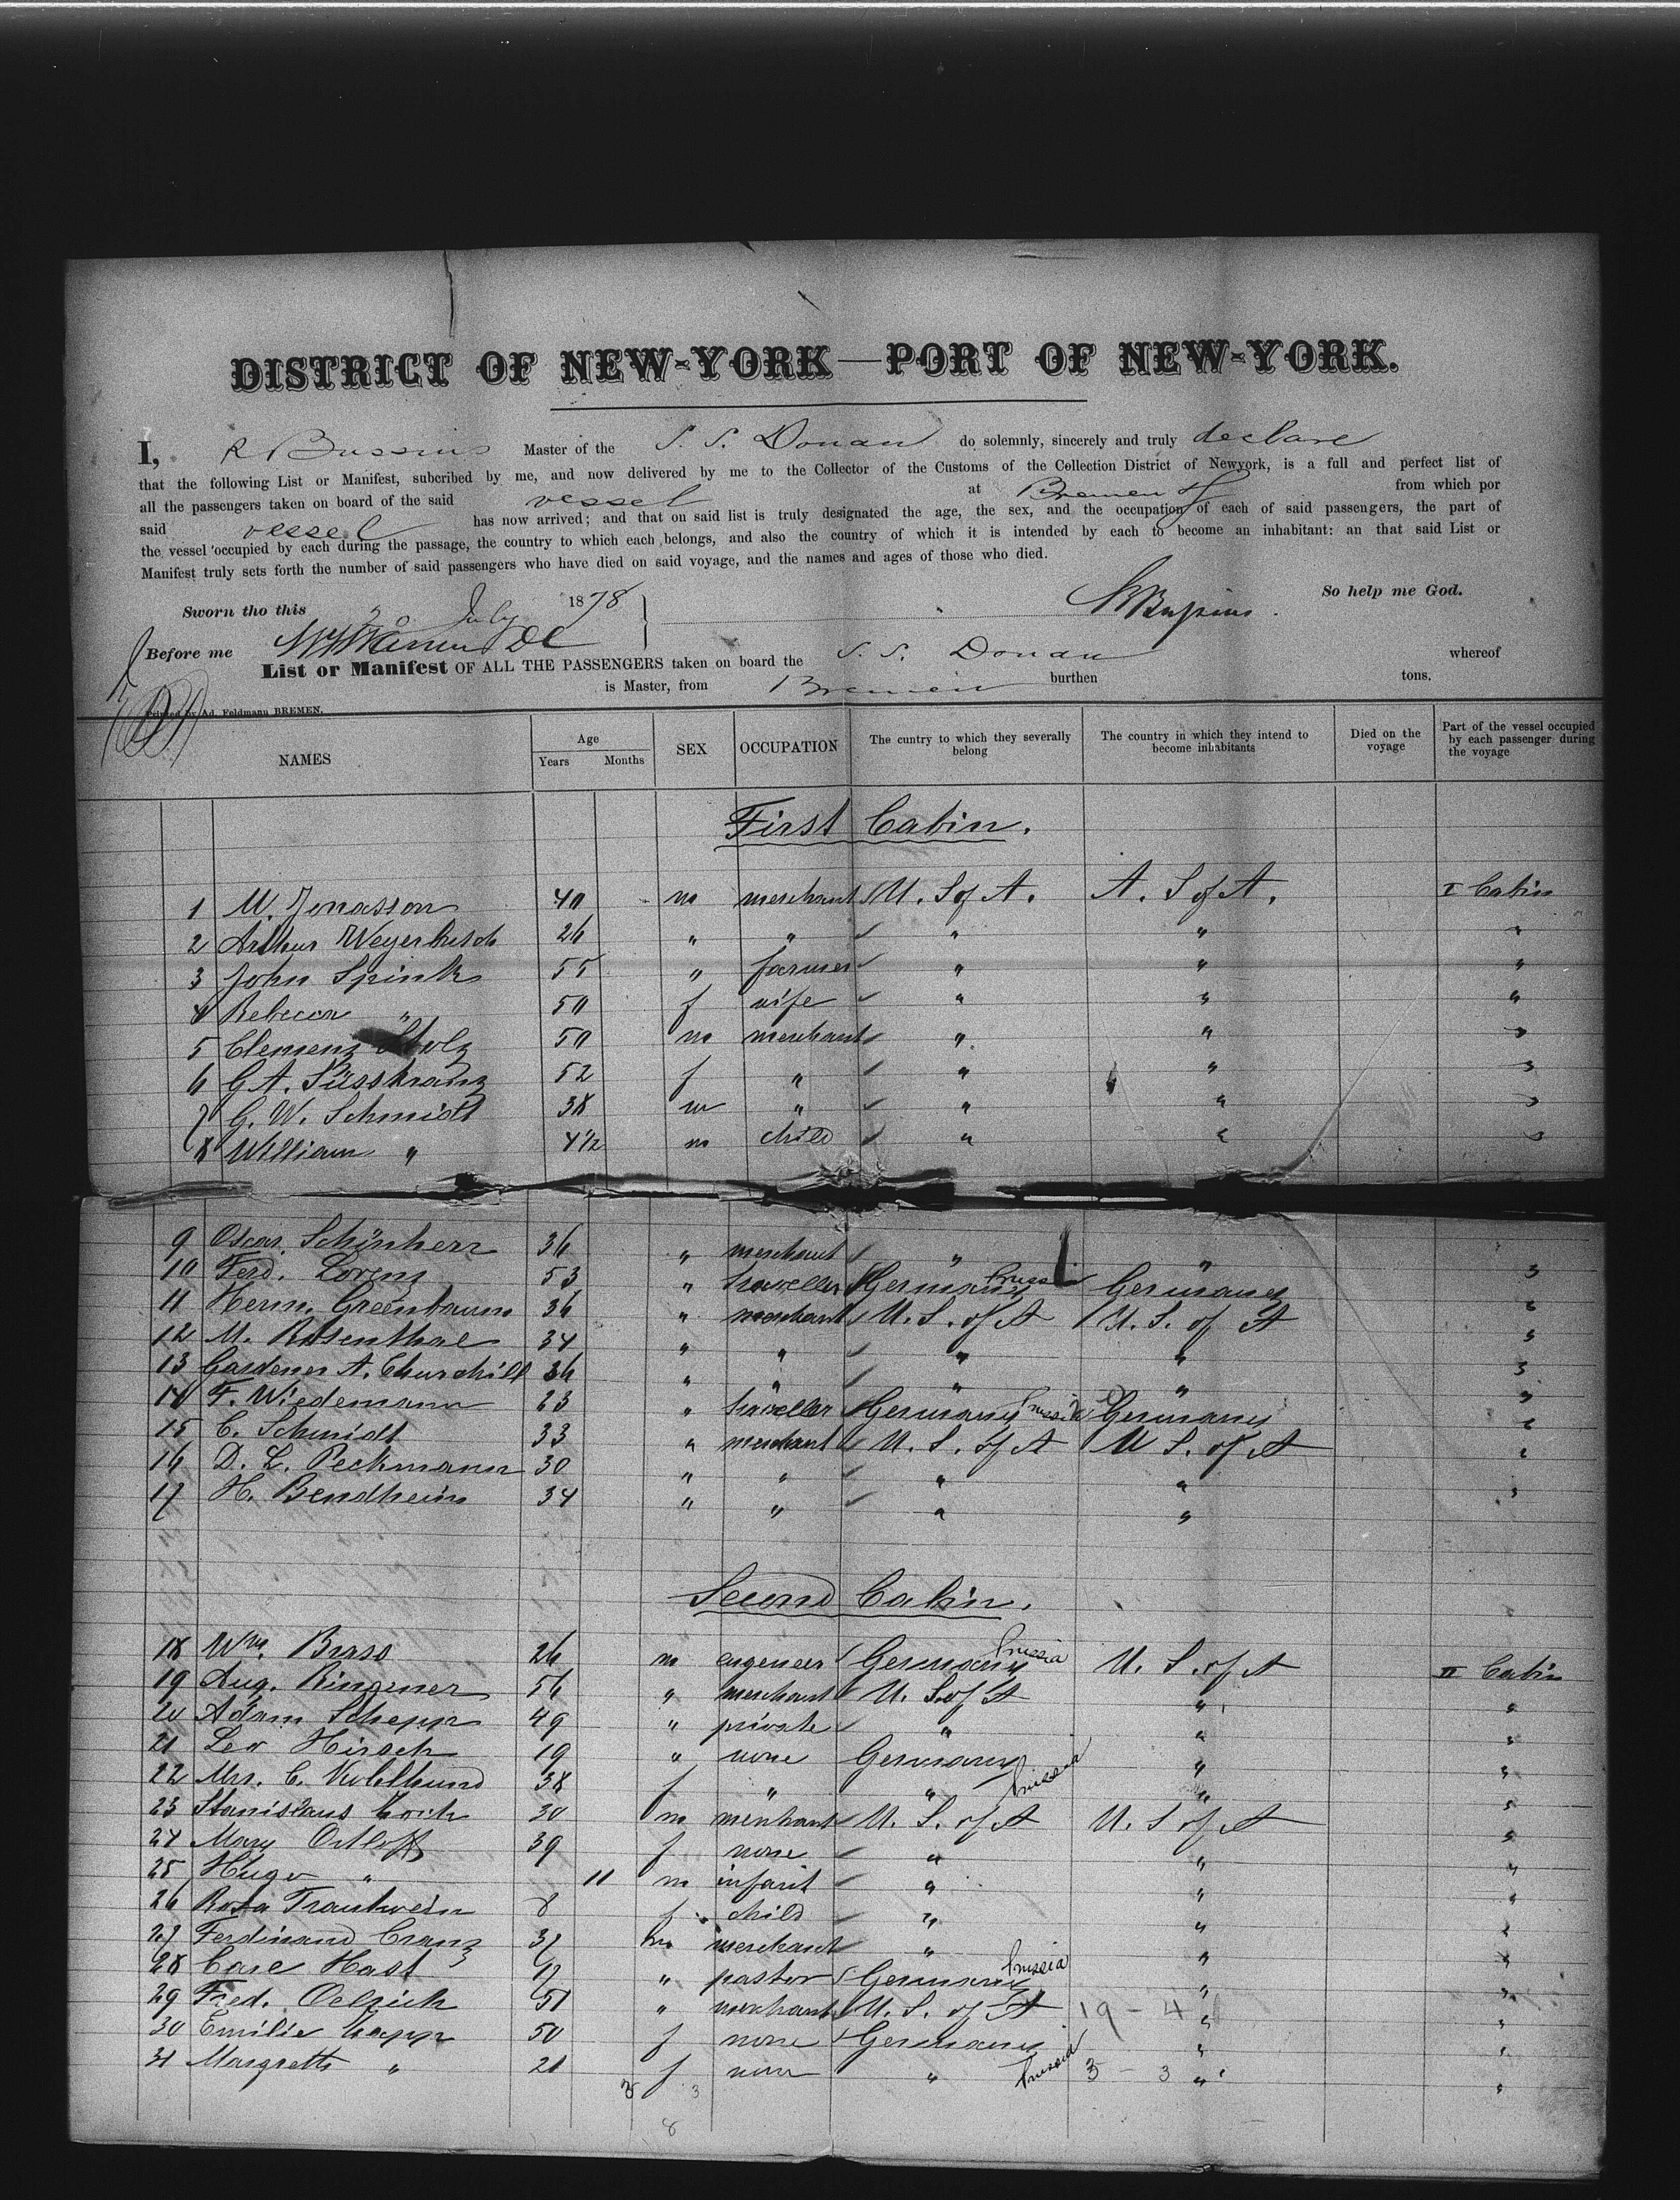 DISTRICT OF NEW-YORK—PORT OF NEW-YORK.
I, R Bussius Master of the S. S. Donau do solemnly, sincerely and truly declare
that the following List or Manifest, subcribed by me, and now delivered by me to the Collector of the Customs of the Collection District of Newyork, is a full and perfect list of
all the passengers taken on board of the said vessel at Bremen from which por
said vessel has now arrived; and that on said list is truly designated the age, the sex, and the occupation of each of said passengers, the part of
the vessel occupied by each during the passage, the country to which each belongs, and also the country of which it is intended by each to become an inhabitant: an that said List or
Manifest truly sets forth the number of said passengers who have died on said voyage, and the names and ages of those who died.
So help me God.
Sworn tho this July 1878 RBussius.
Before me
List or Manifest OF ALL THE PASSENGERS taken on board the S. S. Donau whereof
is Master, from Bremen burthen tons.
Printed by Ad. Feldmann BREMEN.
NAMES Age Years Months SEX OCCUPATION The cuntry to which they severally belong The country in which they intend to become inhabitants Died on the voyage Part of the vessel occupied by each passenger during the voyage
First Cabin.
1 M. Jonasson 40 m merchant U. S of A. A. S of A. I Cabin
2 Arthur Weyerbusch 26 " " " " "
3 John Spinks 55 " farmer " " "
4 Rebecca " 50 f wife " " "
5 Clemens Stolz 50 m merchant " " "
6 G A. Süsskranz 52 f " " " "
7 G. W. Schmidt 38 m " " " "
8 William " 4 1/2 m child " " "
9 Oscar Schönherr 36 " merchant " " "
10 Ferd. Lorenz 53 " traveller Germany Prussia Germany "
11 Herm. Greenbaum 36 " merchant U. S. of A U. S. of A "
12 M. Rosenthal 34 " " " " "
13 Gardener A. Churchill 36 " " " " "
14 F. Wiedemann 23 " traveller Germany Prussia Germany "
15 C. Schmidt 33 " merchant U. S. of A U S. of A "
16 D. L. Peckmann 30 " " " " "
17 H. Bendheim 34 " " " "
Second Cabin.
18 Wm. Brass 26 m engeneer Germany Prussia U. S. of A II Cabin
19 Aug. Ringener 56 " merchant U. S. of A " "
20 Adam Schepp 49 " private " " "
21 Leo Hirsch 19 " none Germany " "
22 Mrs. C. 38 f " " Prussia " "
23 Stanislaus Koch 30 m merchant U. S. of A U. S of A "
24 Mary Ortloff 39 f none " " "
25 Hugo " 11 m infant " " "
26 Rosa Trautwein 8 f child " " "
27 Ferdinand Cranz 37 m merchant " " "
28 Carl Hast 17 " pastor Germany Prussia " "
29 Fred. Oelrich 51 " merchant U. S. of A 19 - 4 " "
30 Emilie Kapp 50 f none Germany " "
31 Margreth " 21 f none " Prussia 3 - 3 " "
3 3
8